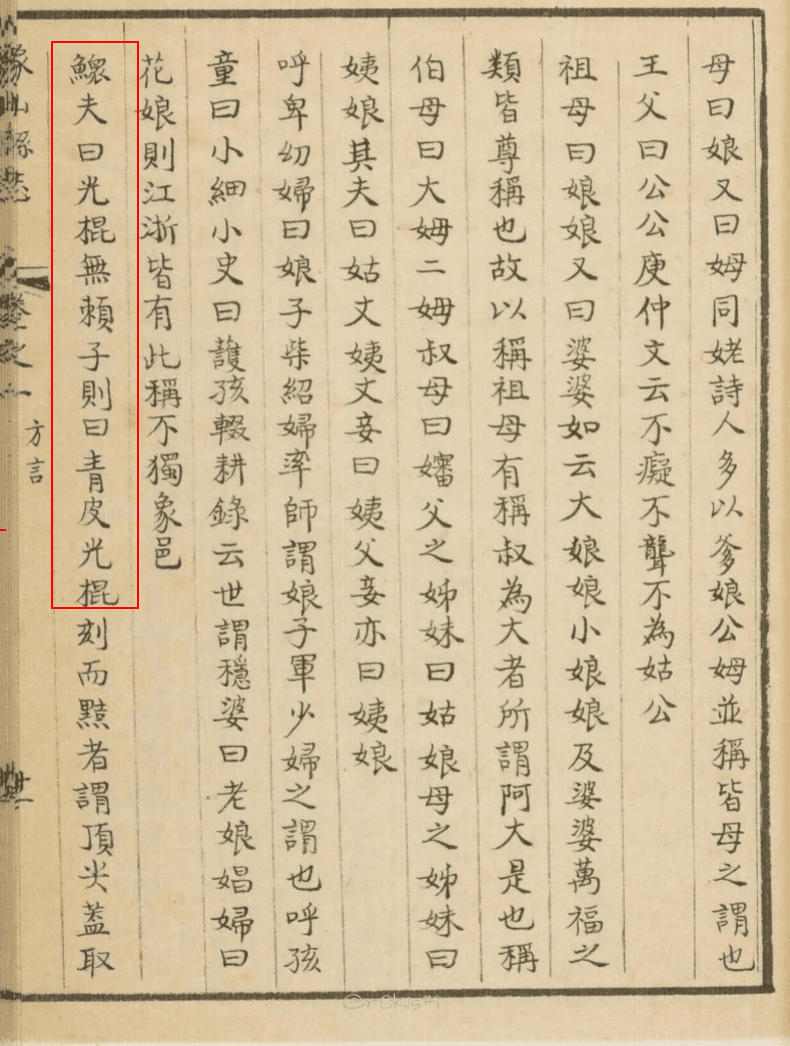 母曰娘又曰姆同姥詩人多以爹娘公姆並稱皆母之謂也
王父曰公公庾仲文云不癡不聾不為姑公
祖母曰娘娘又曰婆婆如云大娘娘小娘娘及婆婆萬福之
類皆尊稱也故以稱祖母有稱叔為大者所謂阿大是也稱
伯母曰大姆二姆叔母曰嬸父之姊妹曰姑娘母之姊妹曰
姨娘其夫曰姑丈姨丈妾曰姨父妾亦曰姨娘
呼卑幼婦曰娘子柴紹婦率師謂娘子軍少婦之謂也呼孩
童曰小細小史曰護孩輟耕錄云世謂穩婆曰老娘娼婦曰
花娘則江浙皆有此稱不獨象邑
鰥夫曰光棍無賴子則曰青皮光棍刻而黠者謂頂尖蓋取
方言
象山縣志
卷之